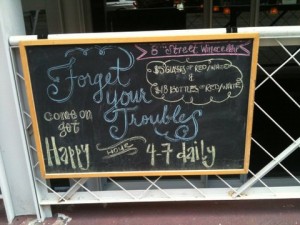 6th Street Winecellar
Forget
your
Troubles
$5 GLASSES OF RED/WHITE
&
$18 BOTTLES OF RED/WHITE
come on
get
Happy HOUR 4-7 daily